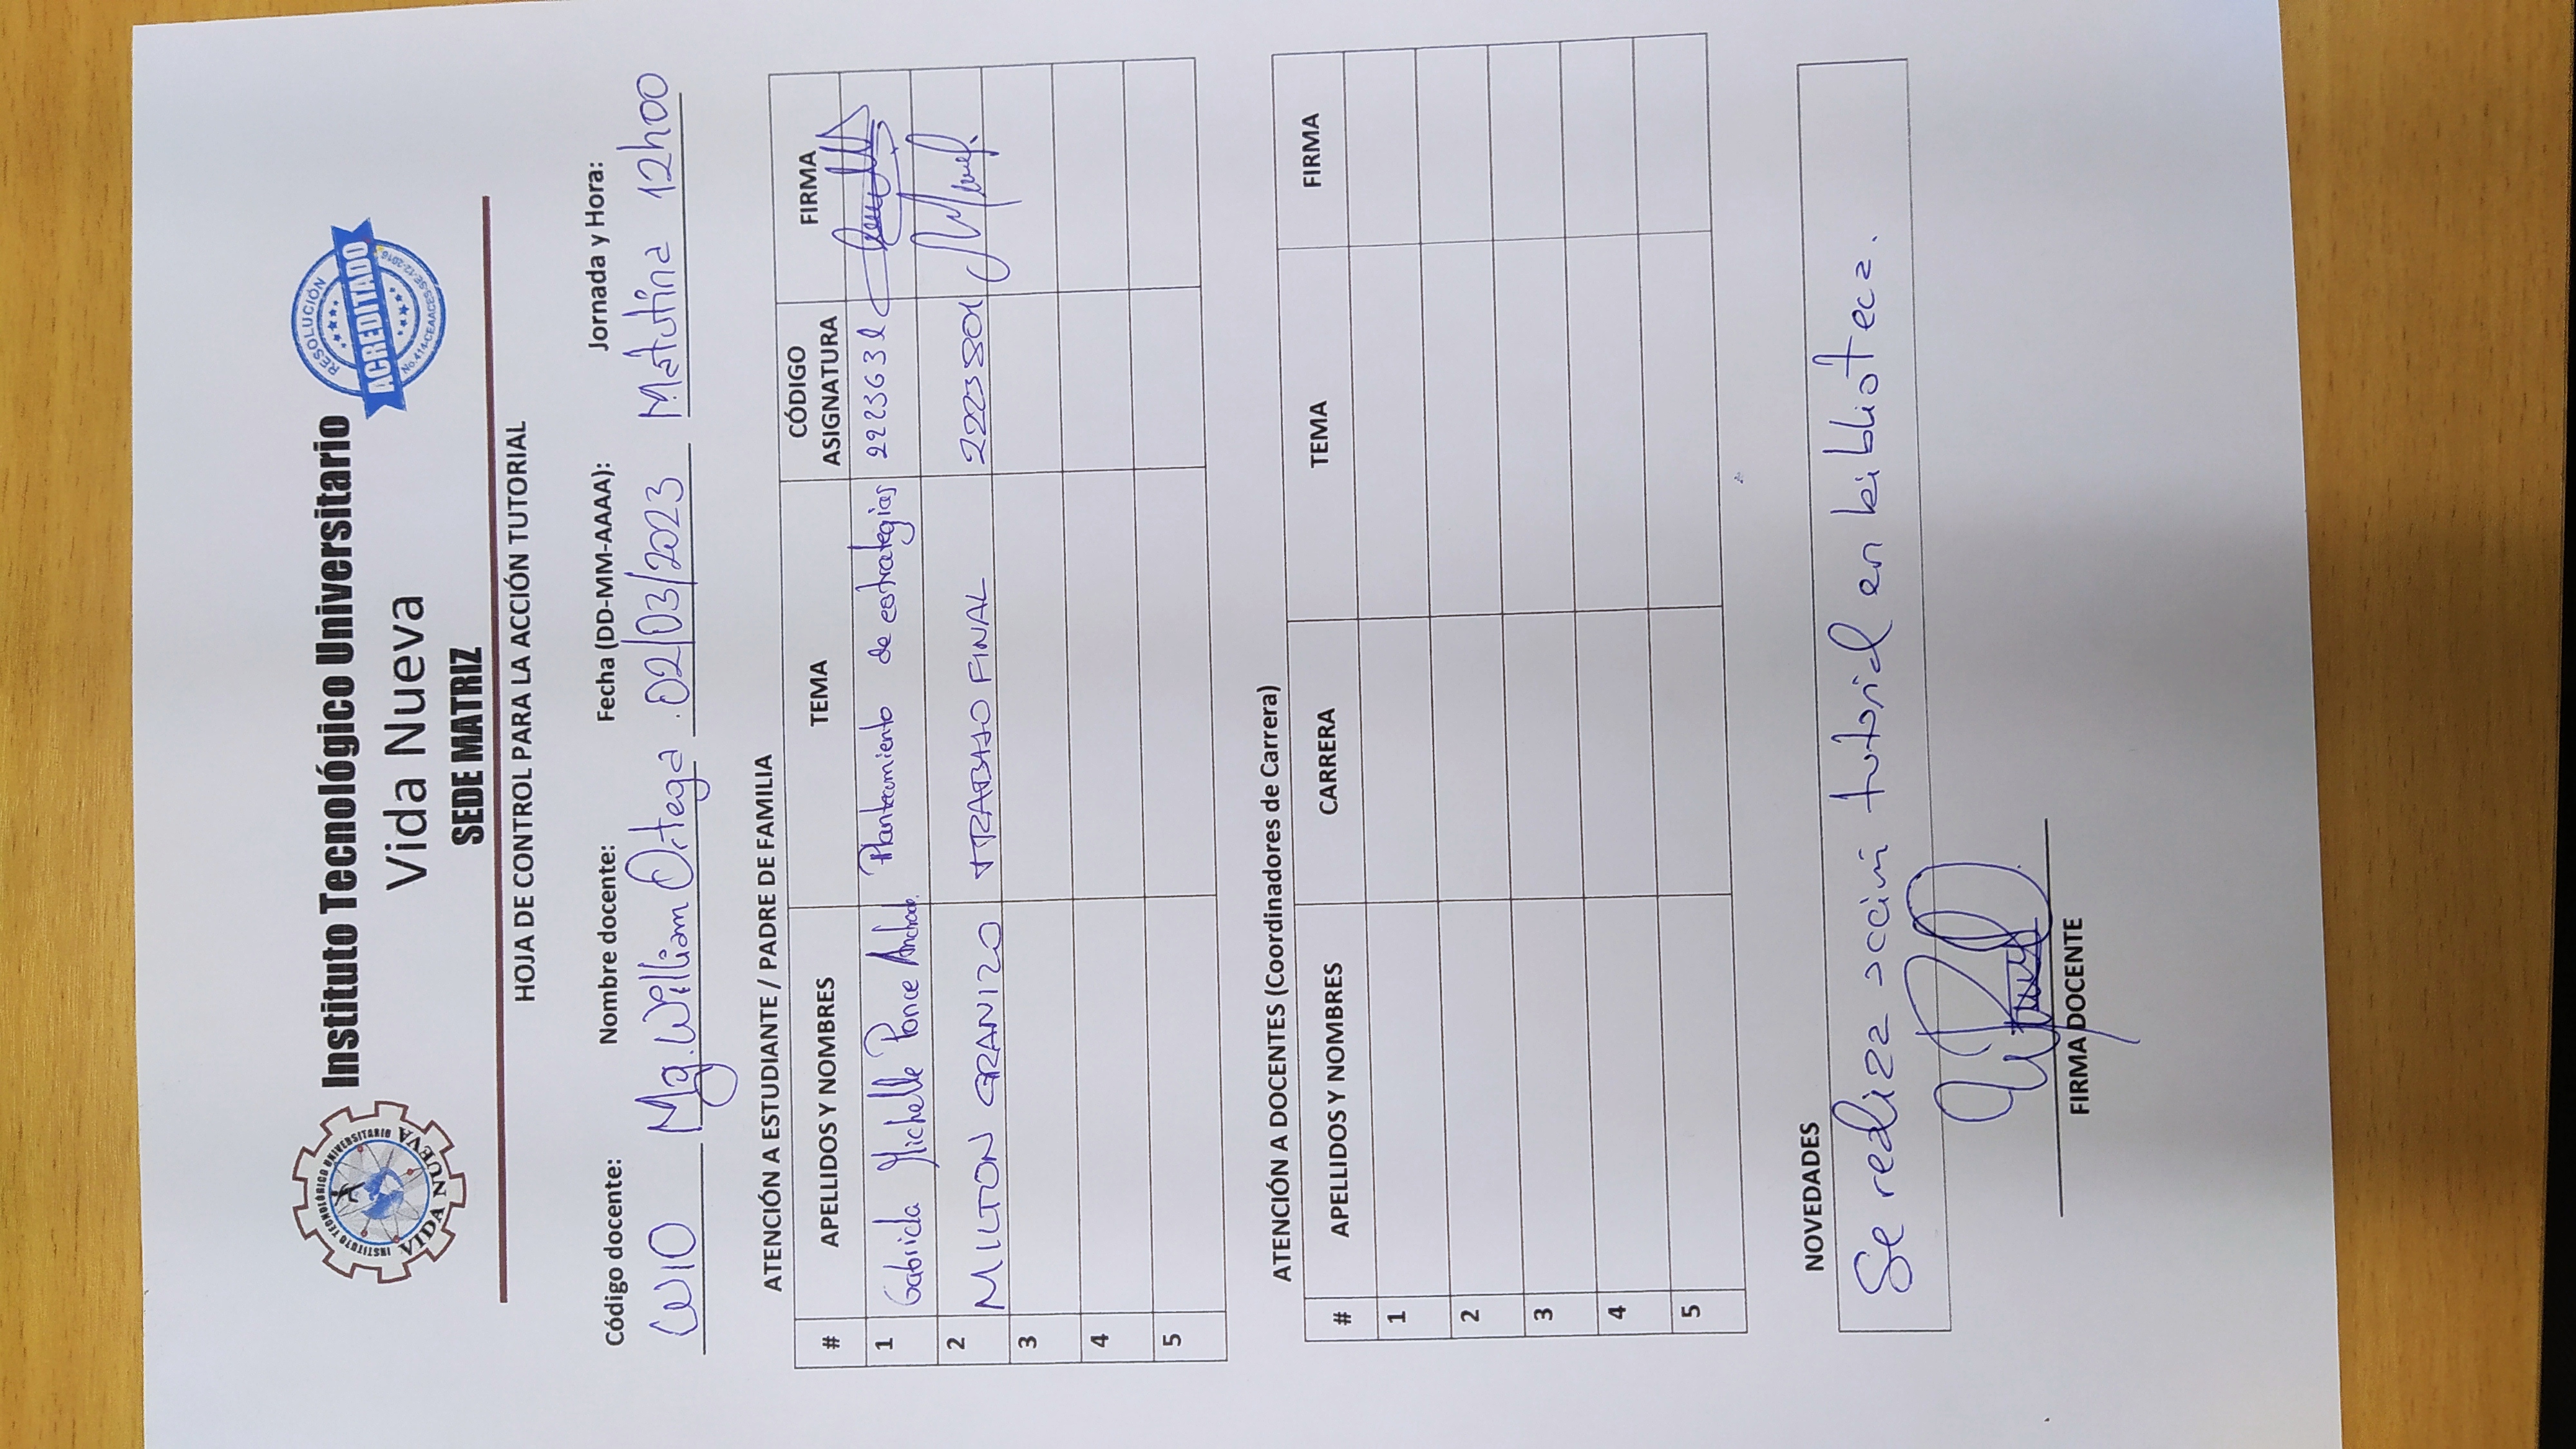 INSTITUTO TECNOLÓGICO UNIVERSITARIO
VIDA NUEVA
Instituto Tecnológico Universitario
Vida Nueva
SEDE MATRIZ
RESOLUCIÓN
ACREDITADO
No.414-CEAACES-SE-12-2016
HOJA DE CONTROL PARA LA ACCIÓN TUTORIAL
Código docente: Nombre docente: Fecha (DD-MM-AAAA): Jornada y Hora:
WIO Mg. William Ortega 02/03/2023 Matutina 12h00
ATENCIÓN A ESTUDIANTE / PADRE DE FAMILIA
# APELLIDOS Y NOMBRES TEMA CÓDIGO ASIGNATURA FIRMA
1 Gabriela Michelle Ponce Andrade Planteamiento de estrategias
2 MILTON GRANIZO TRABAJO FINAL 2223801
3
4
5
ATENCIÓN A DOCENTES (Coordinadores de Carrera)
# APELLIDOS Y NOMBRES CARRERA TEMA FIRMA
1
2
3
4
5
NOVEDADES
Se realiza acción tutorial en biblioteca.
FIRMA DOCENTE